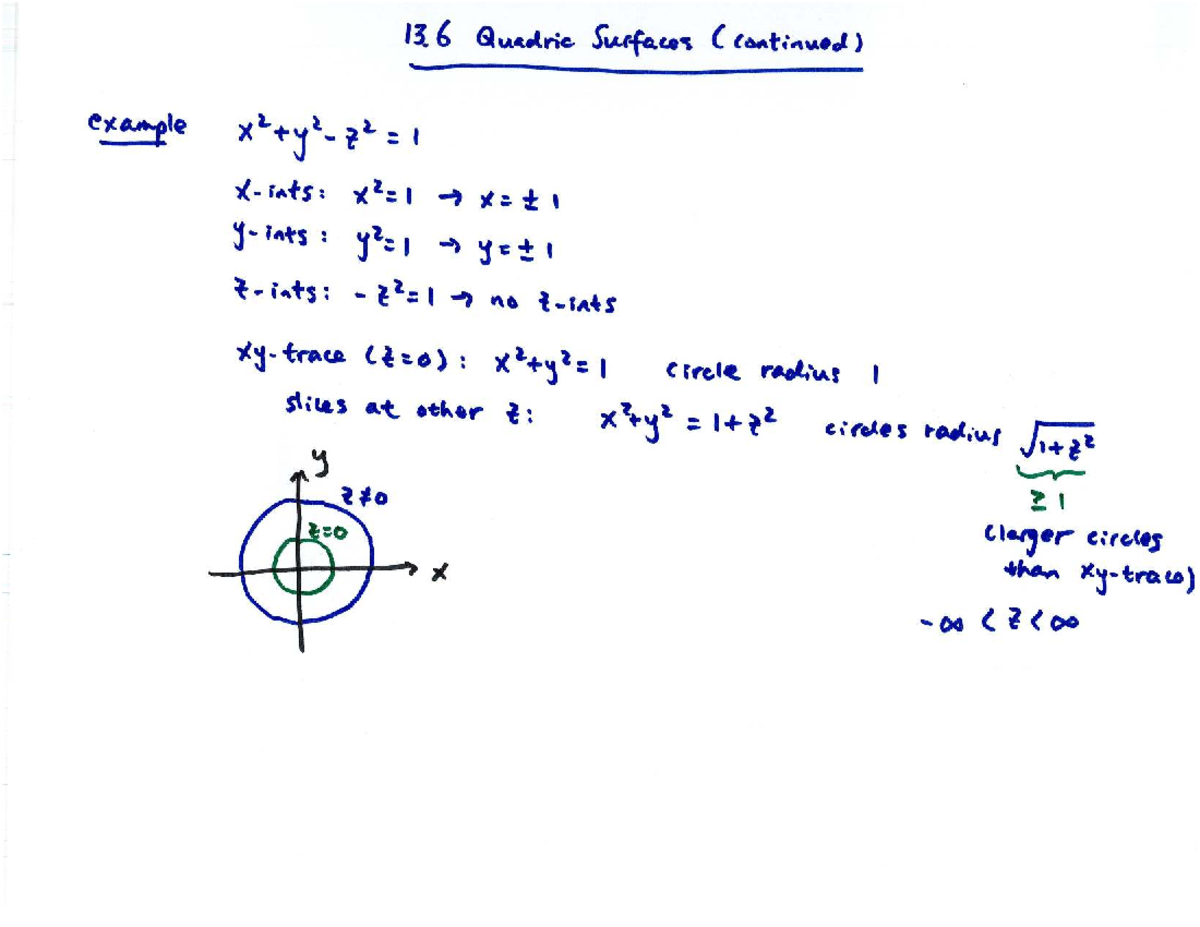 13.6 Quadric Surfaces (continued)
example x²+y²-z²=1
x-ints: x²=1 → x=±1
y-ints: y²=1 → y=±1
z-ints: -z²=1 → no z-ints
xy-trace (z=0): x²+y²=1 circle radius 1
slices at other z: x²+y² = 1+z² circles radius √(1+z²)
≥1
(larger circles
than xy-trace)
-∞ < z < ∞
y
z≠0
z=0
x